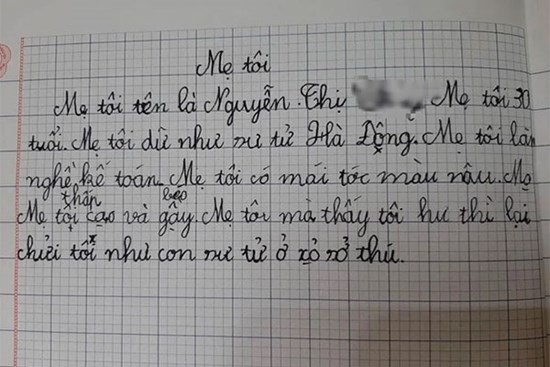 Mẹ tôi
Mẹ tôi tên là Nguyễn Thị Mẹ tôi 30
tuổi. Mẹ tôi dữ như sư tử Hà Động. Mẹ tôi làm
nghề kế toán. Mẹ tôi có mái tóc màu nâu. Mẹ
thấp béo
Mẹ tôi cao và gầy. Mẹ tôi mà thấy tôi hư thì lại
chửi tôi như con sư tử ở xỏ xở thú.